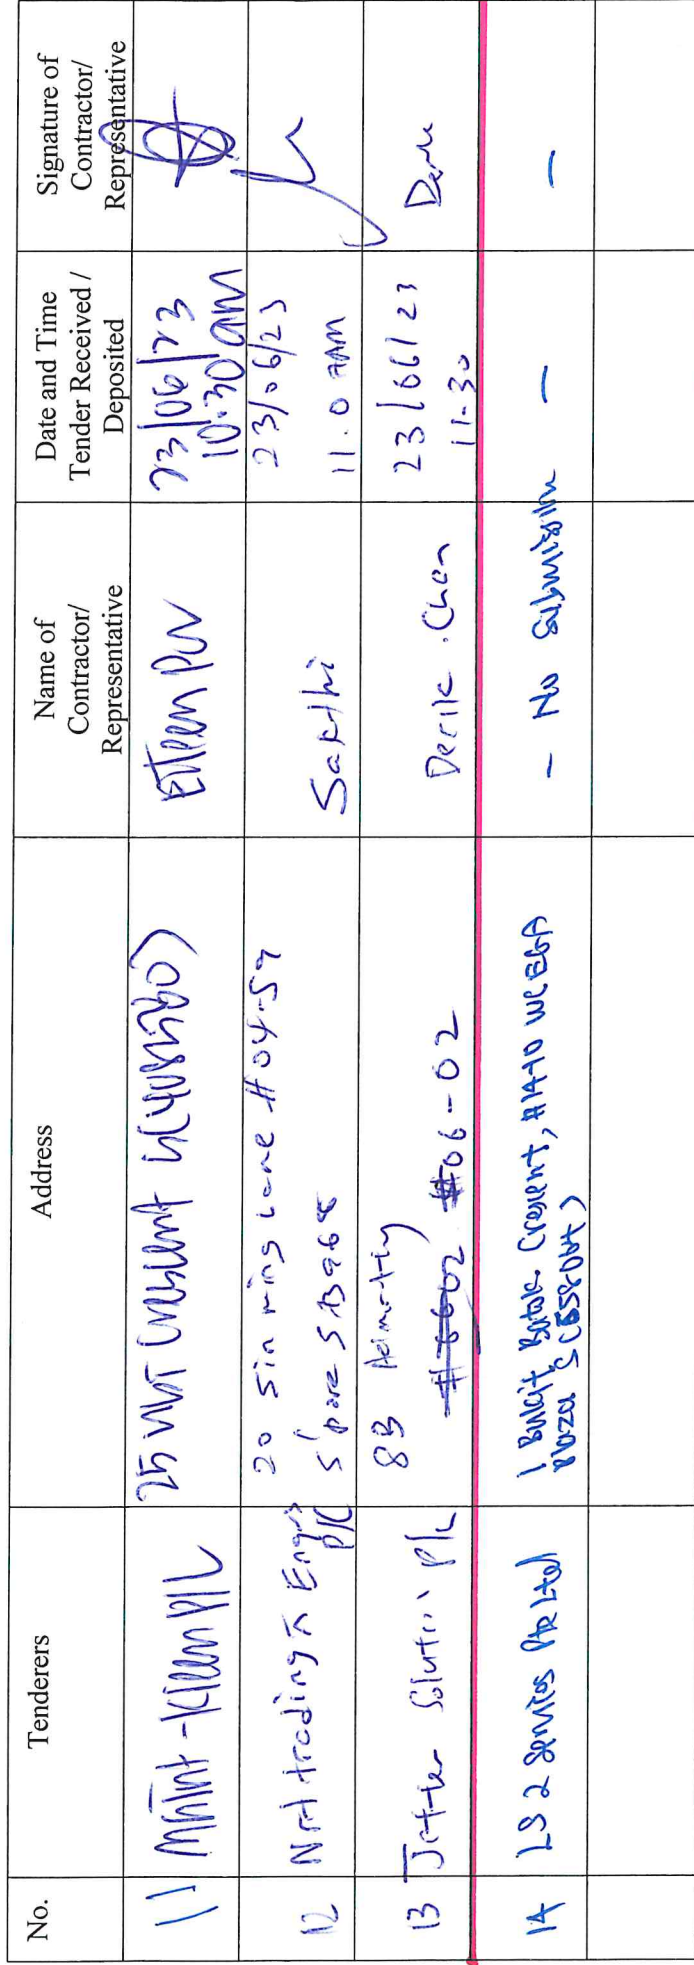 No.
Tenderers
Address
Name of
Contractor/
Representative
Date and Time
Tender Received /
Deposited
Signature of
Contractor/
Representative
11
Maint-Kleen P/L
25 Crescent S(408560)
Eileen
23/06/23
10.30 am
12
trading & Engrg
P/L
20 Sin ming Lane #04-59
S'pore 573968
Sakthi
23/06/23
11.07AM
13
Jetter Solution P/L
8B Admiralty
#06-02
Derik . Chan
23/06/23
11.30
14
LS 2 Services Pte Ltd
1 Bukit Batok Crescent, #14-10 WCEGA
Plaza S(658064)
- No Submission
-
-